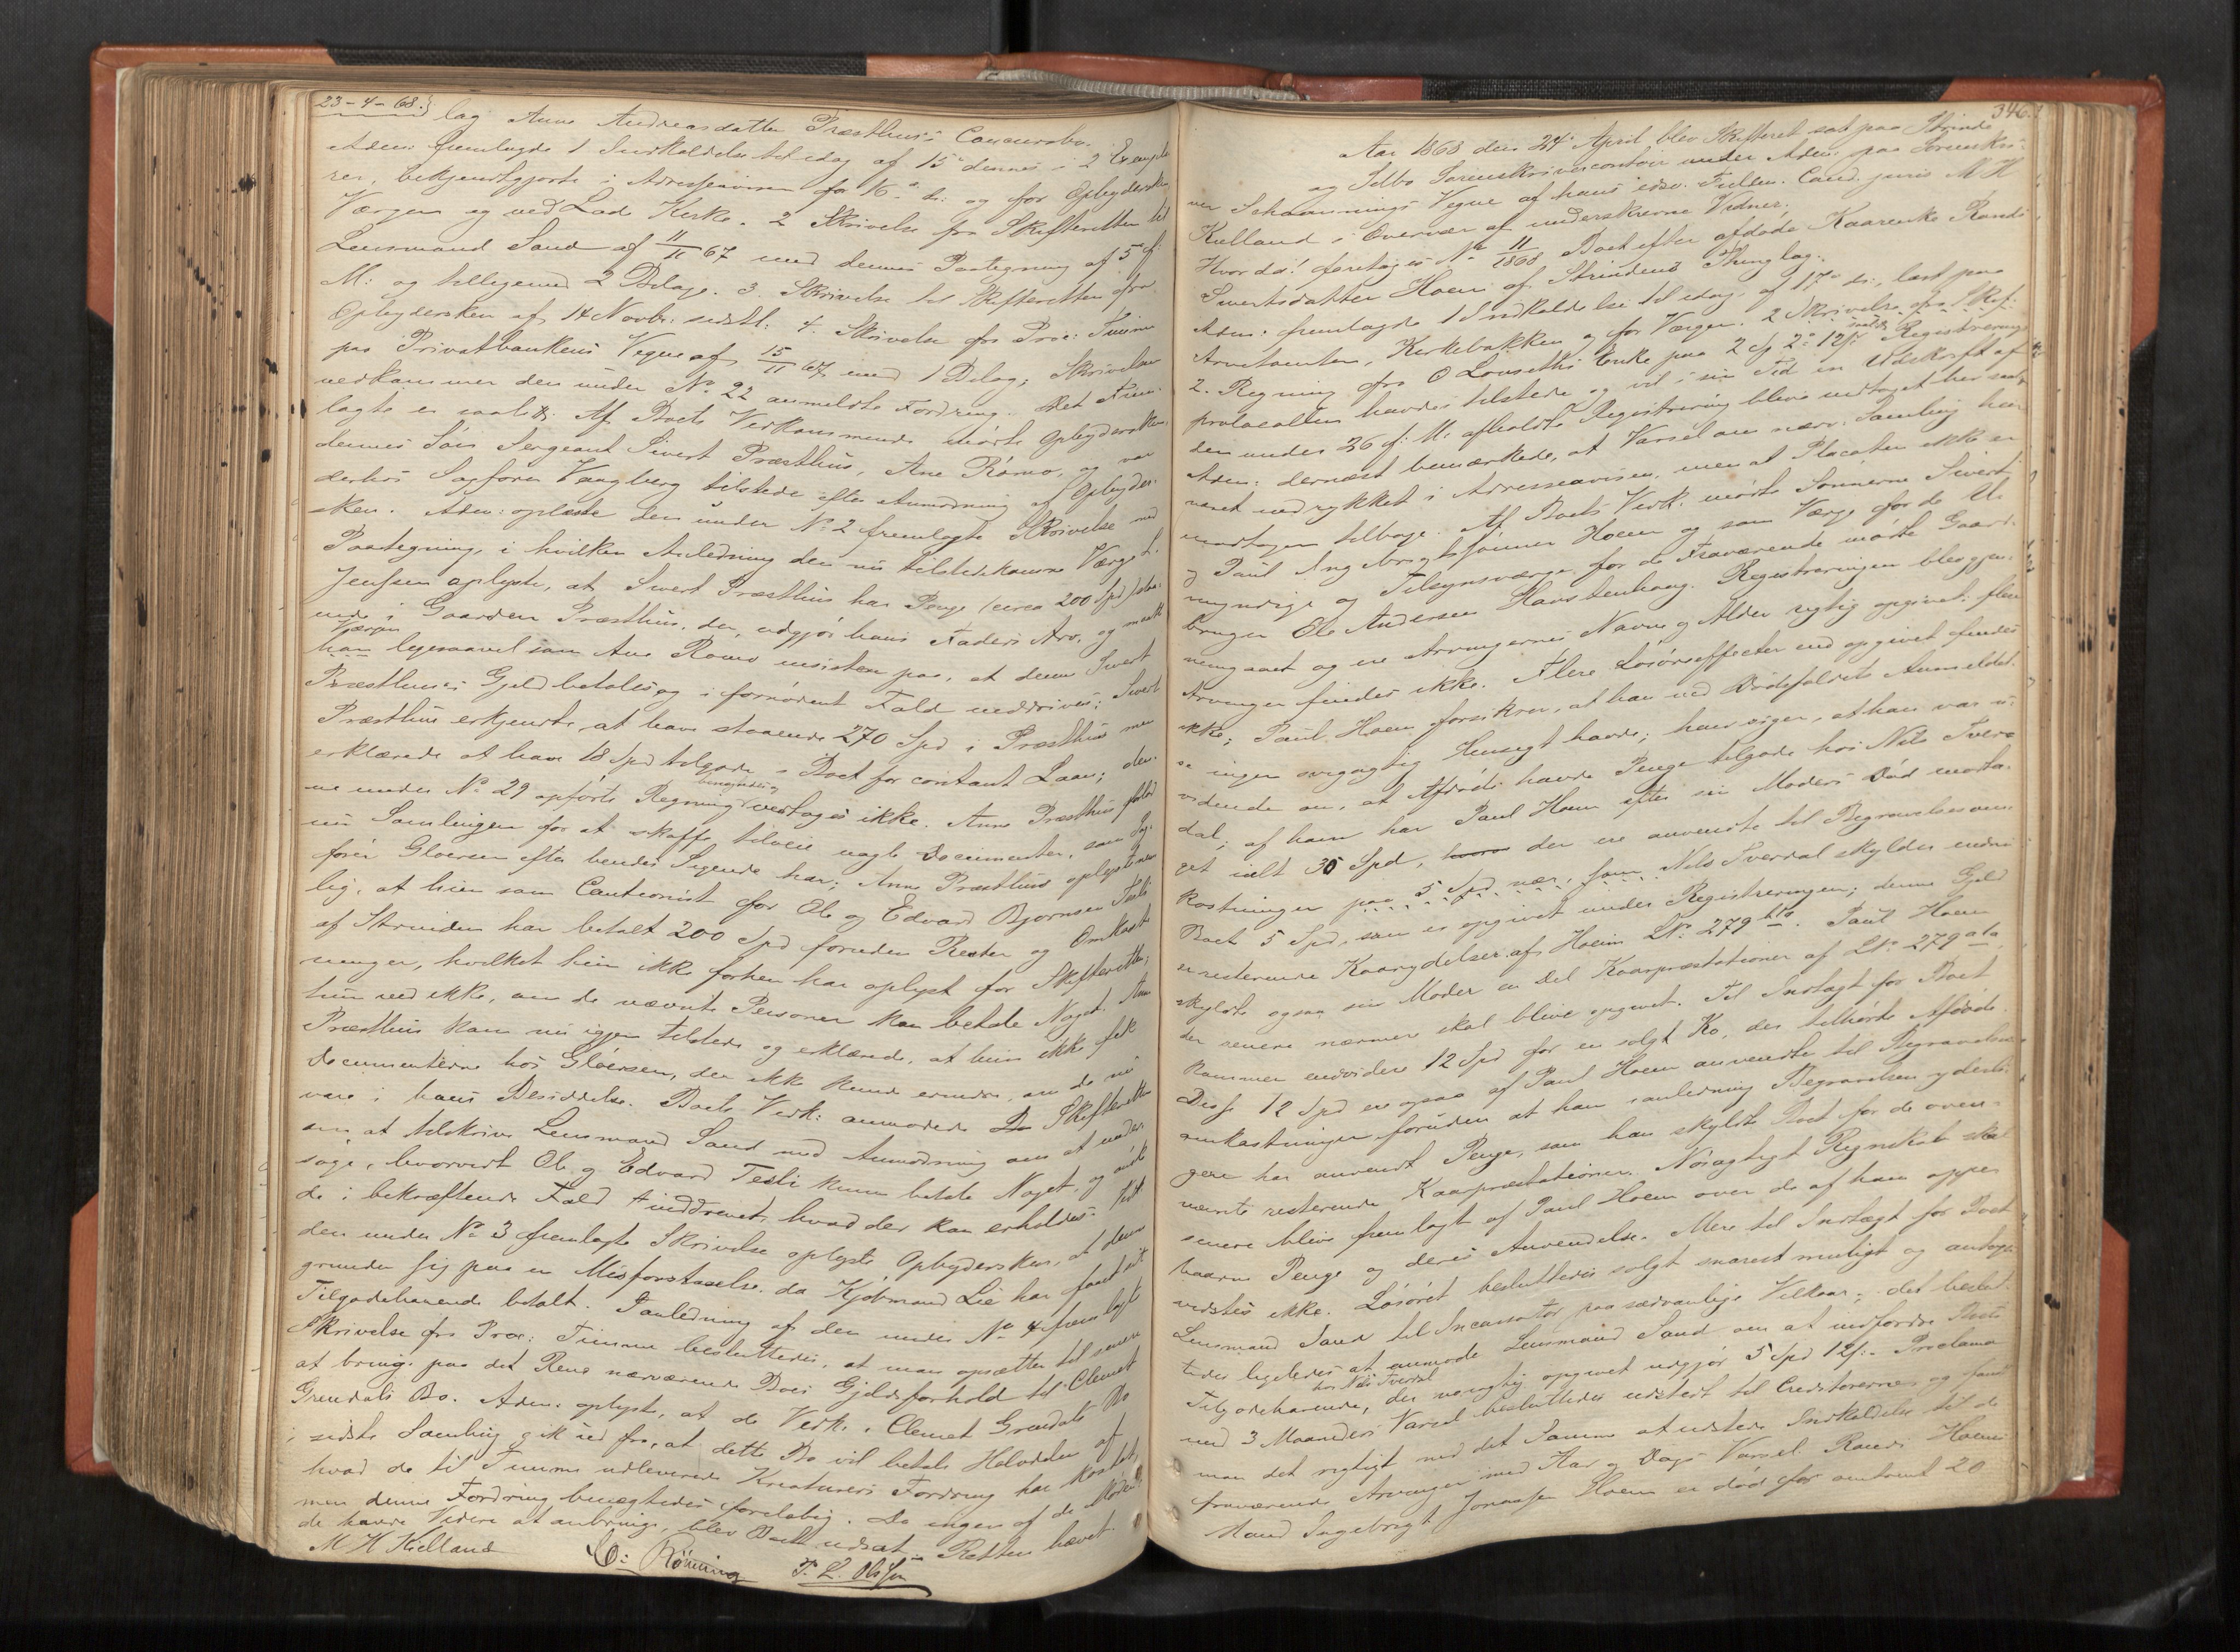 23-4-68.
lag Anne Andreasdatter Præsthus's Concursbo.
Adm: fremlagde 1 Indkaldelse til idag af 15de dennes i 2 Exempla
rer, bekjendtgjorte i Adresseavisen for 16de ds: og for Opbydersken,
Værgen og ved Lade Kirke. 2 Skrivelse fra Skifteretten til
Lensmand Sand af 11/11 67 med dennes Paategning af 5 f.
M: og tillige med 2 Bilage. 3. Skrivelse til Skifteretten fra
Opbydersken af 14 Novbr: sidstl: 4. Skrivelse fra Proc: Timme
paa Privatbankens Vegne af 15/11 67 med 1 Bilag; Skrivelsen
vedkommer den under No 22 anmeldte Fordring. Det Frem-
lagte er saal: Af Boets Vedkommende mødte Opbydersken,
dennes Søn Sergeant Sivert Præsthus, Ane Rømo, og var
derhos Sagfører Vangberg tilstede efter Anmodning af Opbyder-
sken. Adm: oplæste den under No 2 fremlagte Skrivelse med
Paategning, i hvilken Anledning den nu tilstedekomne Værge L.
Jenssen oplyste, at Sivert Præsthus har Penge (circa 200 Spd) staa-
ende i Gaarden Præsthus, der udgjør hans Faders Arv, og maatte
Værgen
han ligesaavel som Ane Rømo insistere paa, at denne Sivert
Præsthus's Gjeld betales og i fornødent Fald inddrives; Sivert
Præsthus erkjendte, at have staaende 270 Spd i Præsthus men
erklærede at have 18 Spd tilgode i Boet for contant Laan; den-
benægtedes og
ne under No 29 opførte Regning vedtoges ikke. Anne Præsthus forlod
nu Samlingen for at skaffe tilveie nogle Documenter, som Sag-
fører Gløersen efter hendes Sigende har; Anne Præsthus oplyste nem-
lig, at hun som Cautionist for Ole og Edvard Bjørnsen Tesli
af Strinden har betalt 200 Spd foruden Renter og Omkost-
ninger, hvilket hun ikke forhen har oplyst for Skifteretten;
hun ved ikke, om de nævnte Personer kan betale Noget. Anne
Præsthus kom nu igjen tilstede og erklærede, at hun ikke fik
Documenterne hos Gløersen, der ikke kunde erindre, om de nu
vare i hans Besiddelse. Boets Vedk: anmodede Skifteretten
om at tilskrive Lensmand Sand med Anmodning om at under-
søge, hvorvidt Ole og Edvard Tesli kunne betale Noget, og
de i bekræftende Fald inddrevet, hvad der kan erholdes.
den under No 3 fremlagte Skrivelse oplyste Opbydersken, at denne
grunder sig paa en Misforstaaelse, da Kjøbmand Lie har faaet sit
Tilgodehavende betalt. I Anledning af den under No 4 fremlagte
Skrivelse fra Proc: Timme besluttedes, at man opsætter til senere
at bringe paa det Rene nærværende Boes Gjeldsforhold til Clemet
Grendals Bo. Adm: oplyste, at de Vedk. i Clemet Grendals Bo
i sidste Samling gik ud fra, at dette Bo vil betale Halvdelen af
hvad de til Timme udleverede Kreaturers Fordring har kostet,
men denne Fordring benægtedes foreløbig. Da ingen af de Mødende
de havde Videre at anbringe, blev Boet udsat. Retten hævet.
M H Kielland   C: Rönning   P. L. Olsen
346.
Aar 1868 den 24de April blev Skifteret sat paa Strinde
og Selbo Sorenskrivercontoir under Adm: paa Sorenskri-
ver Schonnings Vegne af hans edsv. Fuldm. Cand. juris M H
Kielland i Overvær af underskrevne Vidner;
Hvor da! foretoges No 11/1868 Boet efter afdøde Kaarenke Randi
Sivertsdatter Hoem af Strindens Thinglag.
Adm: fremlagde 1 Indkaldelse til idag af 17de ds:, læst paa
Arvetomten, Kirkebakken og for Værgen. 2 Skrivelse fra Skif:
2. Regning fra O Lonseths Enke paa 2 Spd 2 12 Registrerings
protocollen havdes tilstede og vil i sin Tid en Udskrift af
den under 26 f: M: afholdte Registrering blive indtaget her
Adm: dernæst bemærkede, at Varsel om nærv. Samling har
været indrykket i Adresseavisen, men at Placaten ikke er
modtagen tilbage. Af Boets Vedk. mødte Sønnerne Sivert
og Paul Ingebrigtsønner Hoem og som Værge for de U-
myndige og Tilsynsværge for de Fraværende mødte Gaard-
bruger Ole Andersen Havstenhaug. Registreringen blev gjen-
nemgaaet og ere Arvingernes Navne og Alder rigtig opgivet; flere
Arvinger findes ikke. Flere Løsøreeffecter end opgivet findes
ikke; Paul Hoem forsikrer, at han ved Dødsfaldets Anmeldel-
se ingen svigagtig Hensigt havde; han siger, at han var u-
vidende om, at Afdøde havde Penge tilgode hos Nils Tver-
dal; af ham har Paul Hoem efter sin Moders Død modta-
get ialt 35 Spd, der ere anvendte til Begravelsesom-
kostninger paa 5 Spd nær, som Nils Tverdal skylder endnu
Boet 5 Spd, som er opgivet under Registreringen; denne Gjeld
er resterende Kaarydelser af Hoeim LNo 279 b. Paul Hoem
skyldte ogsaa sin Moder en Del Kaarpræstationer af LNo 279 a
der senere nærmere skal blive opgivet. Til Indtægt for Boet
kommer endvidere 12 Spd for en solgt Ko, der tilhørte Afdøde.
Disse 12 Spd ere ogsaa af Paul Hoem anvendte til Begravelses-
omkostninger foruden at han i anledning Begravelsen yderli-
gere har anvendt Penge, som han skyldte Boet for de oven-
nævnte resterende Kaarpræstationer. Nøiagtigt Regnskab skal
senere blive fremlagt af Paul Hoem over de af ham oppe-
baarne Penge og deres Anvendelse. Mere til Indtægt for Boet
vidstes ikke. Løsøret besluttedes solgt snarest muligt og antoges
Lensmand Sand til Incassator paa sædvanlige Vilkaar; det beslut-
tedes ligeledes at anmode Lensmand Sand om at indfordre Boets
hos Nils Tverdal
Tilgodehavende, der nøiagtig opgivet udgjør 5 Spd 12 s. Proclama
med 3 Maaneders Varsel besluttedes udstedt til Creditorerne og fandt
man det rigtigt med det Samme at udstede Indkaldelse til de
fraværende Arvinger med Aar og Dags Varsel. Randi Hoems
Mand Ingebrigt Jonassen Hoem er død for omtrent 20